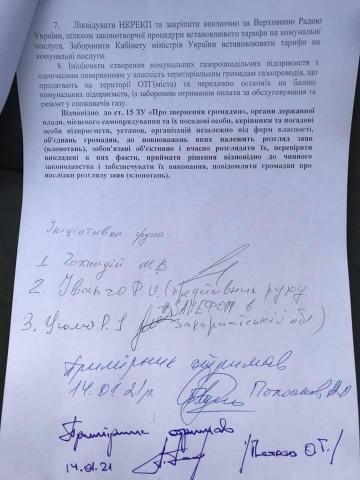 7. Ліквідувати НКРЕКП та закріпити виключно за Верховною Радою
України, шляхом законотворчої процедури встановлювати тарифи на комунальні
послуги. Заборонити Кабінету міністрів України встановлювати тарифи на
комунальні послуги.
8. Ініціювати створення комунальних газорозподільчих підприємств з
одночасним поверненням у власність територіальним громадам газопроводів, що
пролягають на території ОТГ(міста) та передачею останніх на баланс
комунальних підприємств, із забороною отримання оплати за обслуговування та
ремонт у споживачів газу.
Відповідно до ст. 15 ЗУ «Про звернення громадян», органи державної
влади, місцевого самоврядування та їх посадові особи, керівники та посадові
особи підприємств, установ, організацій незалежно від форм власності,
об'єднань громадян, до повноважень яких належить розгляд заяв
(клопотань), зобов'язані об'єктивно і вчасно розглядати їх, перевіряти
викладені в них факти, приймати рішення відповідно до чинного
законодавства і забезпечувати їх виконання, повідомляти громадян про
наслідки розгляду заяв (клопотань).
Ініціативна група:
1
2. (представник руху
#SAVEФОП в
3. Закарпатській обл)
Примірник отримав
14.01.21р.
Примірник отримав
14.01.21